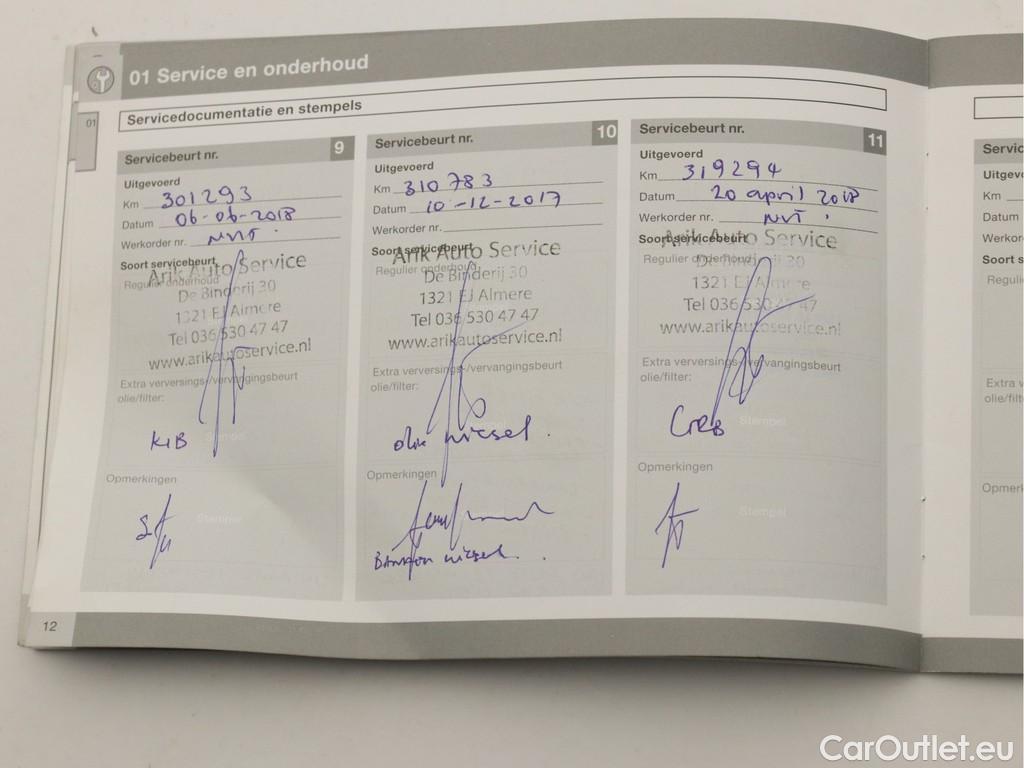 01 Service en onderhoud
01
Servicedocumentatie en stempels
Servicebeurt nr. 9
Uitgevoerd
Km 301293
Datum 06-06-2018
Werkorder nr. NVT.
Soort servicebeurt
Regulier onderhoud
Arik Auto Service
De Binderij 30
1321 EJ Almere
Tel 036 530 47 47
www.arikautoservice.nl
Extra verversings-/vervangingsbeurt
olie/filter:
Stempel
Opmerkingen
Stempel
Servicebeurt nr. 10
Uitgevoerd
Km 310783
Datum 10-12-2017
Werkorder nr.
Soort servicebeurt
Regulier onderhoud
Arik Auto Service
De Binderij 30
1321 EJ Almere
Tel 036 530 47 47
www.arikautoservice.nl
Extra verversings-/vervangingsbeurt
olie/filter:
Opmerkingen
Servicebeurt nr. 11
Uitgevoerd
Km 319294
Datum 20 april 2018
Werkorder nr. NVT.
Soort servicebeurt
Regulier onderhoud
Arik Auto Service
De Binderij 30
1321 EJ Almere
Tel 036 530 47 47
www.arikautoservice.nl
Extra verversings-/vervangingsbeurt
olie/filter:
Stempel
Opmerkingen
Stempel
12
Servic
Uitgev
Km
Datum
Werkor
Soort s
Reguli
Extra v
olie/filt
Opmer
CarOutlet.eu